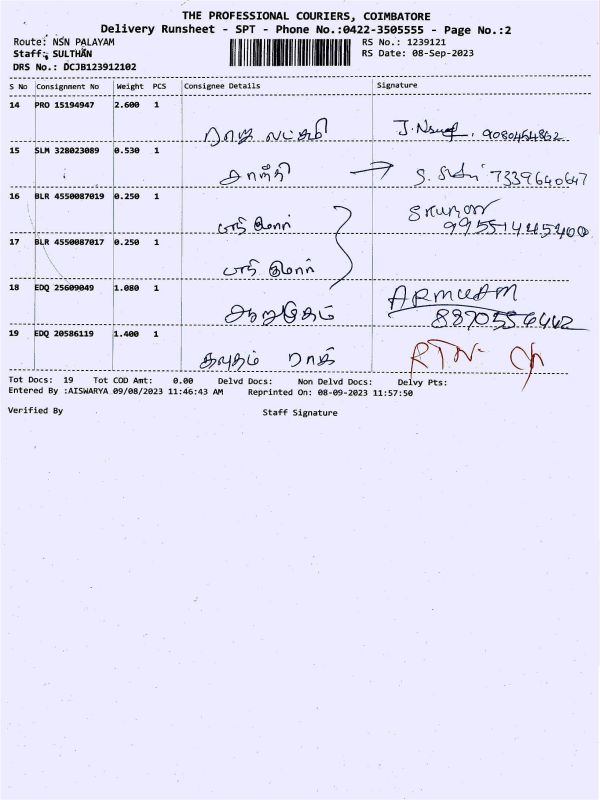 THE PROFESSIONAL COURIERS, COIMBATORE
Delivery Runsheet - SPT - Phone No.:0422-3505555 - Page No.:2
Route: NSN PALAYAM
RS No.: 1239121
Staff: SULTHAN
RS Date: 08-Sep-2023
DRS No.: DCJB123912102
S No Consignment No Weight PCS Consignee Details Signature
14 PRO 15194947 2.600 1
ராஜ லட்சுமி J. 9080454862
15 SLM 328023089 0.530 1
சாந்தி S. 7339640647
16 BLR 4550087019 0.250 1
9955144540
17 BLR 4550087017 0.250 1
18 EDQ 25609049 1.080 1
ஆறுமுகம் ARMUGAM
8870556442
19 EDQ 20586119 1.400 1
கவுதம் ராஜ் RTN.
Tot Docs: 19 Tot COD Amt: 0.00 Delvd Docs: Non Delvd Docs: Delvy Pts:
Entered By :AISWARYA 09/08/2023 11:46:43 AM Reprinted On: 08-09-2023 11:57:50
Verified By Staff Signature